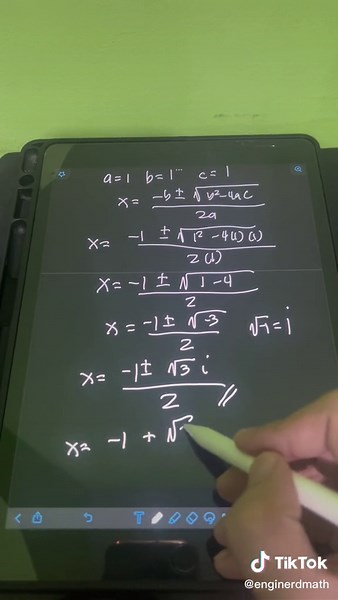 a=1 b=1 c=1
x= -b ± √b²-4ac
2a
x= -1 ± √1²-4(1)(1)
2(1)
x= -1 ± √1-4
2
x= -1 ± √-3 √-1=i
2
x= -1 ± √3 i
2 //
x= -1 + √
TikTok
@enginerdmath